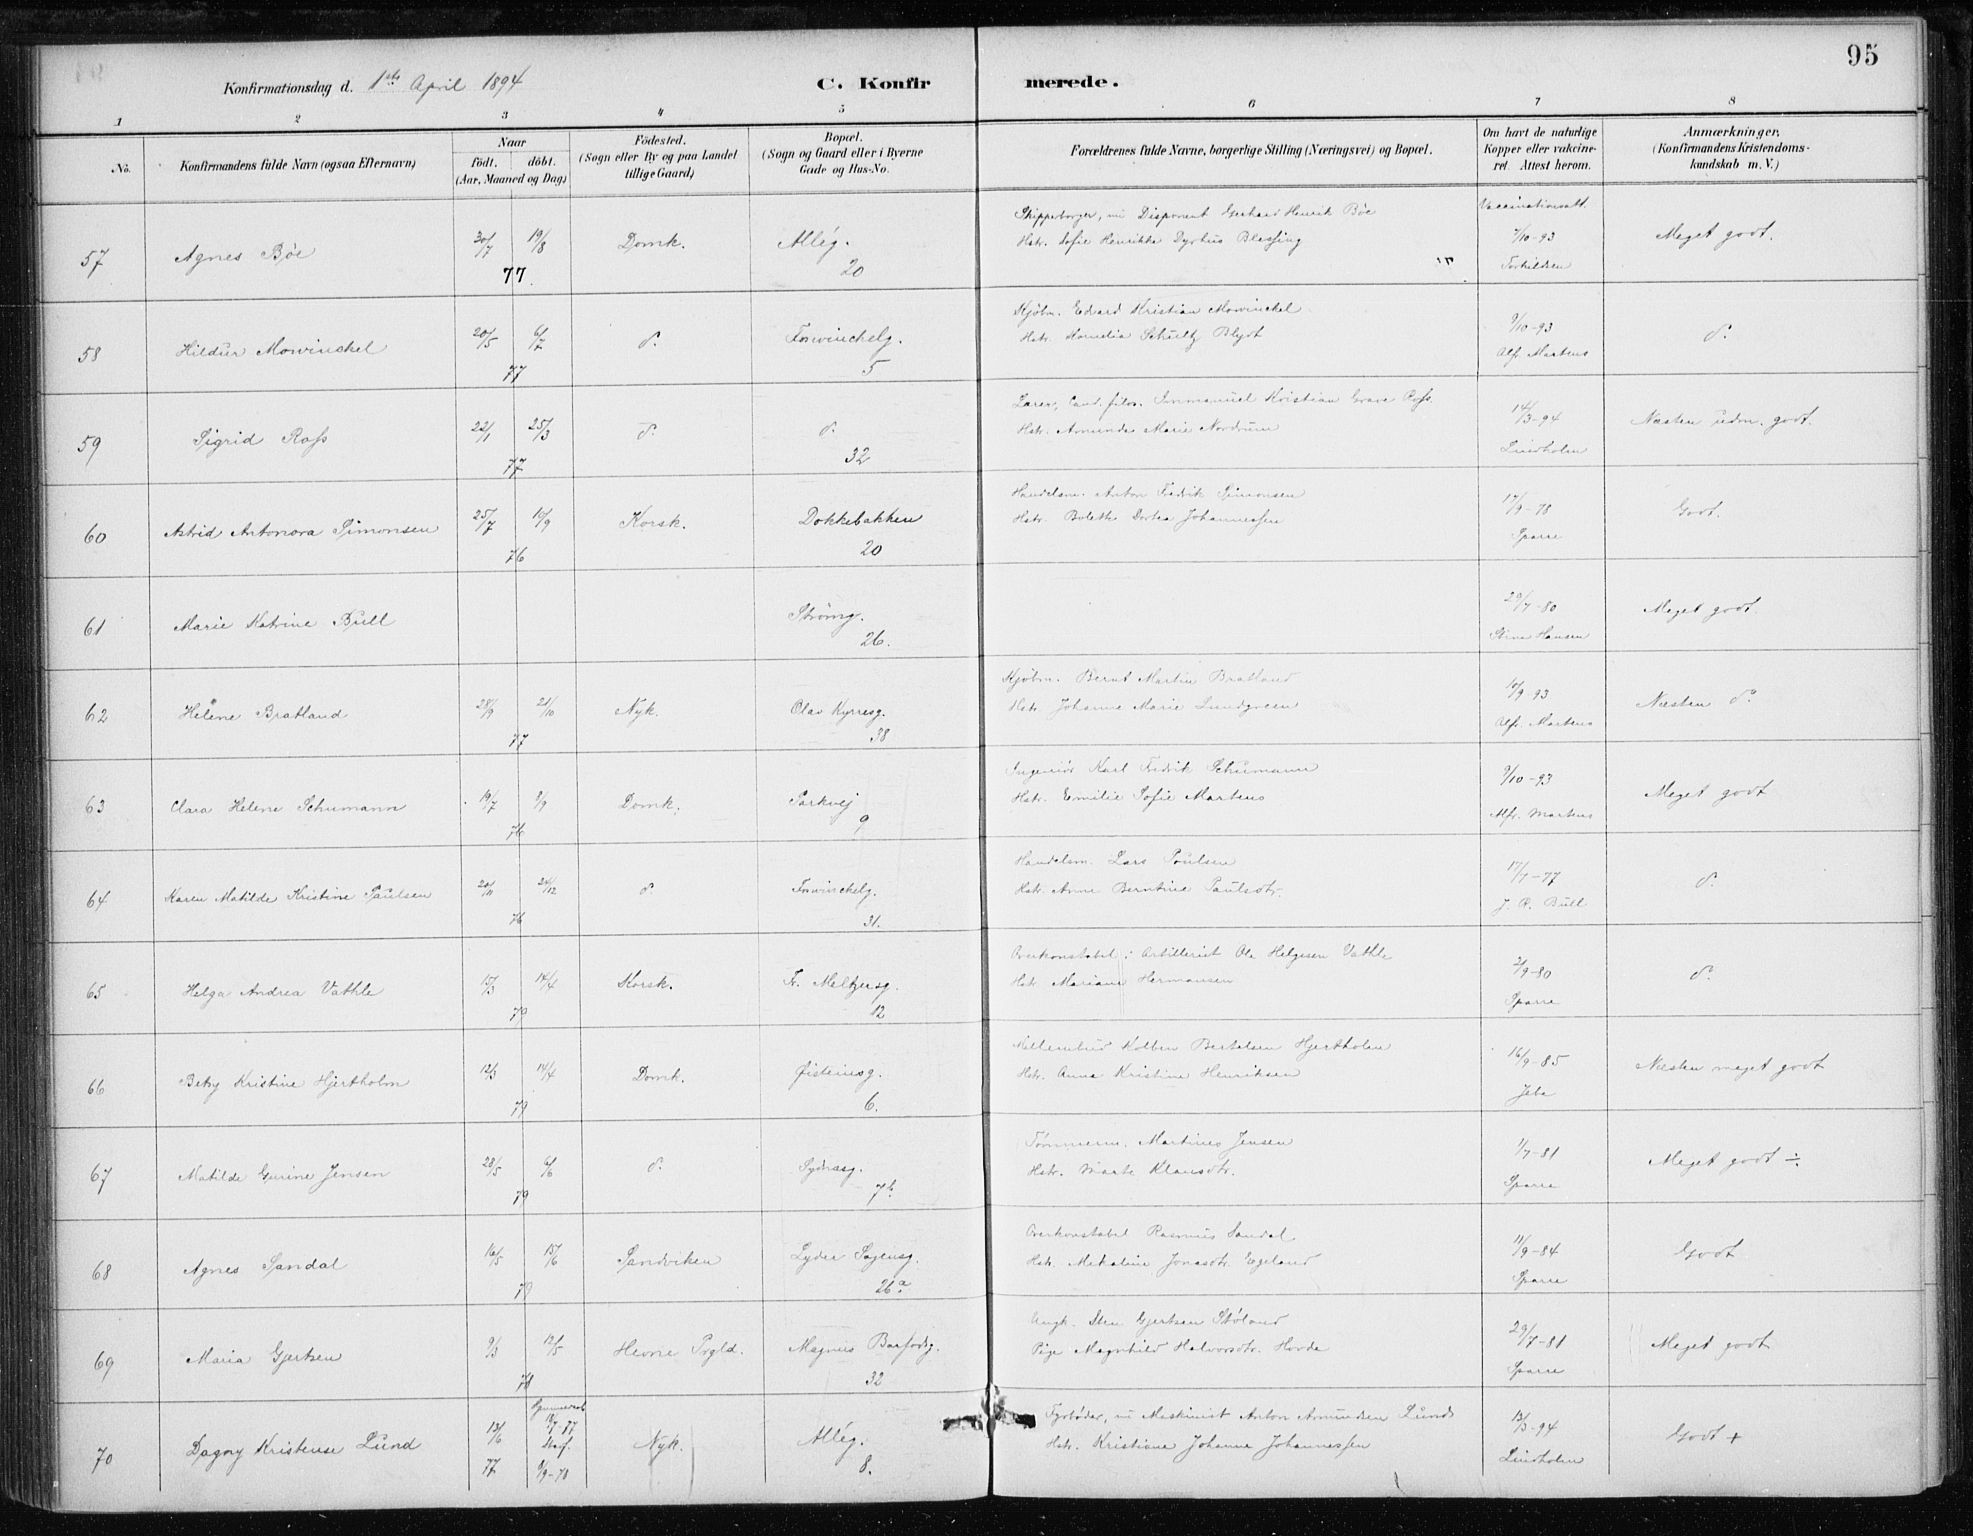 95
Konfirmationsdag d. 1ste April 1894
C. Konfirmerede.
1 2 3 4 5 6 7 8
No.
Konfirmandens fulde Navn (ogsaa Efternavn)
Naar
födt. döbt.
(Aar, Maaned og Dag)
Födested.
(Sogn eller By og paa Landet
tillige Gaard)
Bopæl.
(Sogn og Gaard eller i Byerne
Gade og Hus-No.
Forældrenes fulde Navne, borgerlige Stilling (Næringsvei) og Bopæl.
Om havt de naturlige
Kopper eller vakcine-
ret. Attest herom.
Anmærkninger.
(Konfirmandens Kristendoms-
kundskab m. V.)
57 Agnes Böe 30/7 19/8 77 Domk. Allég. 20
Skipperborger, nu Disponent Gerhard Henrik Böe
Hstr. Sofie Henrikke Dyrhus Blessing
Vaccinationsatt. 7/10-93 Torkildsen
Meget godt.
58 Hildur Mowinckel 20/5 6/7 77 d. Foswinckelg. 5
Kjöbm. Edvard Kristian Mowinckel
Hstr. Kornelia Schultz Blydt
9/10-93 Alfr. Martens
d.
59 Sigrid Ross 22/1 25/3 77 d. d. 32
Lærer, Cand. filos. Immanuel Kristian Grave Ross
Hstr. Amunda Marie Nordrum
14/3-94 Lindholm
Næsten udm. godt.
60 Astrid Antonora Simonsen 25/7 10/9 76 Korsk. Dokkebakken 20
Handelsm. Anton Fredrik Simonsen
Hstr. Bolette Dortea Johannessen
17/9-78 Sparre
Godt.
61 Marie Katrine Bull Strömg. 26.
20/7-80 Stine Hansen
Meget godt.
62 Helene Bratland 28/9 21/10 77 Nyk. Olav Kyrresg. 38
Kjöbm. Bernt Martin Bratland
Hstr. Johanne Marie Lundgreen
10/9-93 Alfr. Martens
Næsten do
63 Clara Helene Schumann 19/7 3/9 76 Domk. Parkvej 9
Ingeniör Karl Fredrik Schumann
Hstr. Emilie Sofie Martens
9/10-93 Alfr. Martens
Meget godt
64 Karen Matilde Kristine Paulsen 20/11 24/12 76 d. Foswinckelg. 31.
Handelsm. Lars Poulsen
Hstr. Anne Berntine Paulsdtr.
17/7-77 J. R. Bull
d.
65 Helga Andrea Vathle 15/3 14/4 79 Korsk. Fr. Meltzersg. 12
Overkonstabel i Artilleriet Ole Helgesen Vathle
Hstr. Mariane Hermansen
2/9-80 Sparre
do
66 Betzy Kristine Hjertholm 12/3 14/4 79 Domk. Øisteinsg. 6.
Mellembud Kolben Bertelsen Hjertholm
Hstr. Anna Kristine Henriksen
16/9-85 Jebe
Næsten meget godt
67 Matilde Gurine Jensen 28/5 6/6 79 d. Sydnæsg. 7b
Tömmerm. Martines Jensen
Hstr. Marte Klausdtr.
1/7-81 Sparre
Meget godt ÷
68 Agnes Sandal 16/5 15/6 79 Sandviken Lyder Sagensg. 26a
Overkonstabel Rasmus Sandal
Hstr. Mekaline Jonasdtr. Egeland
11/9-84 Sparre
Godt
69 Maria Gjertsen 9/3 12/5 78 Hevne Prgld. Magnus Barfodsg. 32
Ungk. Sten Gjertsen Stöland
Pige Magnhild Halvorsdtr. Hovde
29/7-81 Sparre
Meget godt
70 Dagny Kristense Lund 13/6 77 Hjemmedöbt 18/7-77 Stadf. 8/9-78 Nyk. Allég. 8.
Fyrböder, nu Maskinist Anton Amundsen Lund
Hstr. Kristiane Johanne Johannessen
13/3-94 Lindholm
Godt +